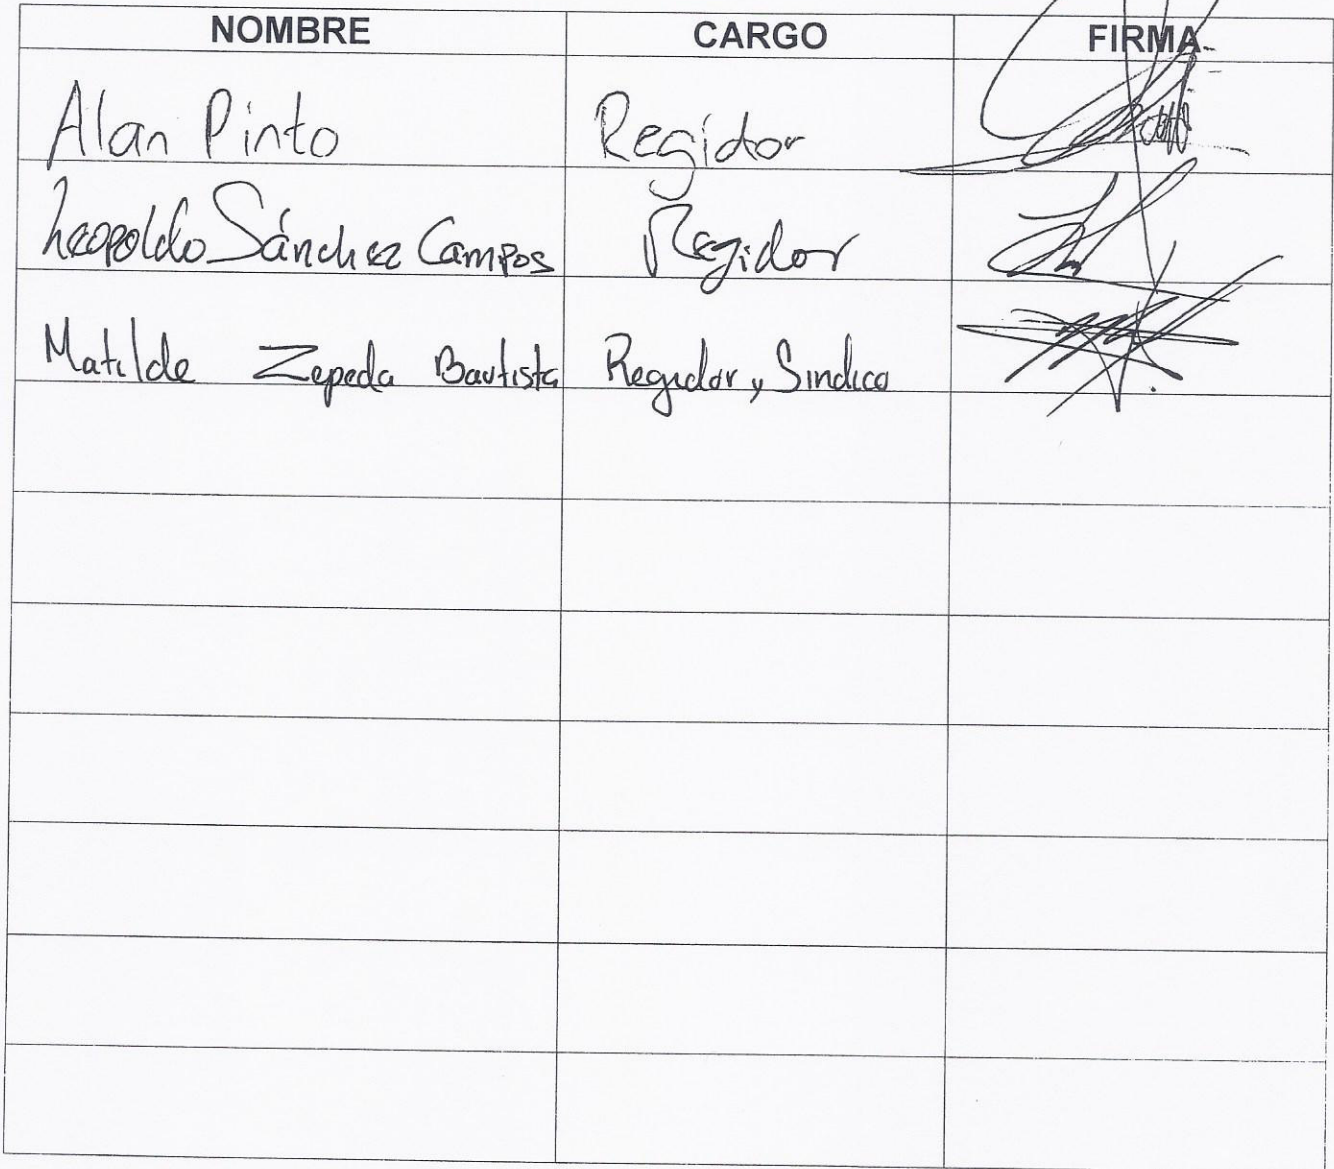 NOMBRE CARGO FIRMA
Alan Pinto Regidor
Leopoldo Sánchez Campos Regidor
Matilde Zepeda Bautista Regidor, Sindico